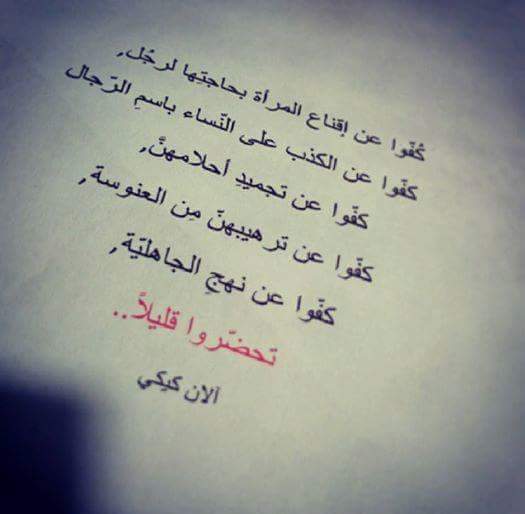 كُفّوا عن إقناع المرأة بحاجتِها لرجُل,
كفّوا عن الكذب على النّساء باسمِ الرّجال
كفّوا عن تجميدِ أحلامهنَّ,
كفّوا عن ترهيبهنّ مِن العنوسة,
كفّوا عن نهجِ الجاهليّة,
تحضّروا قليلاً..
آلان كيكي